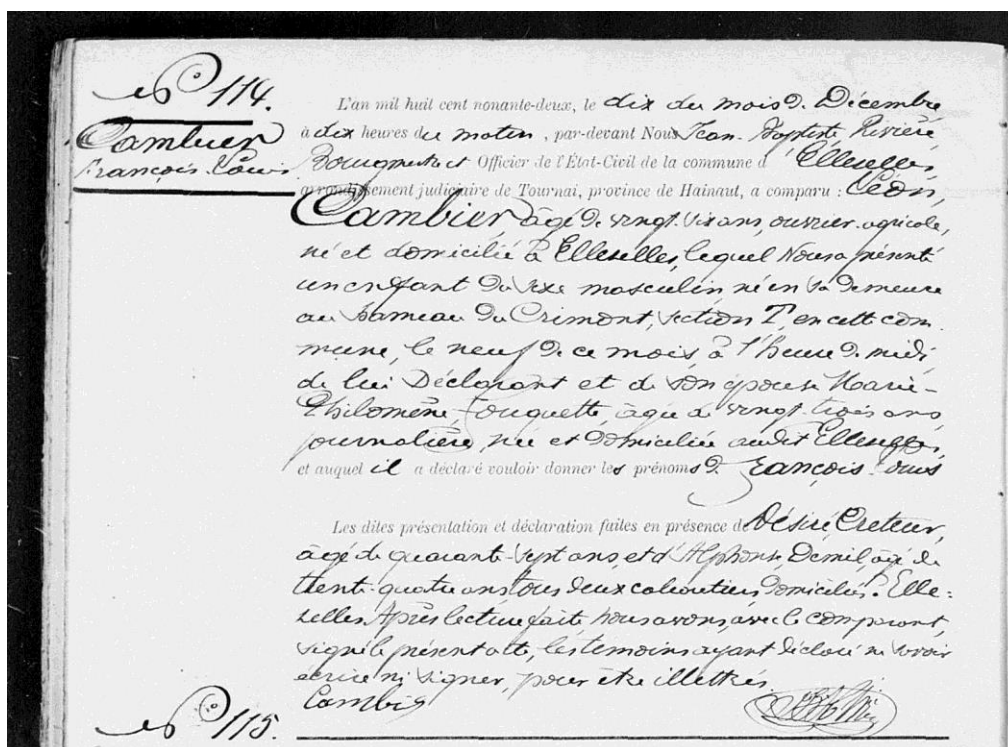 No 114.
Cambier
François Louis
L'an mil huit cent nonante-deux, le dix du mois de Décembre
à dix heures du matin, par-devant Nous Jean-Baptiste Rivière
Bourgmestre et Officier de l'État-Civil de la commune d'Ellezelles,
arrondissement judiciaire de Tournai, province de Hainaut, a comparu : Léon,
Cambier, âgé de vingt-six ans, ouvrier agricole,
né et domicilié à Ellezelles, lequel Nous a présenté
un enfant du sexe masculin né en sa demeure
au hameau du Crimont, section I, en cette com-
mune, le neuf de ce mois à l'heure de midi
de lui Déclarant et de son épouse Marie-
Philomène Fouquette, âgée de vingt-trois ans
journalière, née et domiciliée audit Ellezelles,
et auquel il a déclaré vouloir donner les prénoms de François Louis
Les dites présentation et déclaration faites en présence de Désiré Creteur,
âgé de quarante-sept ans, et d'Alphonse Demil, âgé de
trente-quatre ans tous deux cabaretiers domiciliés à Elle-
zelles. Après lecture faite nous avons, avec le comparant,
signé le présent acte, les témoins ayant déclaré ne savoir
écrire ni signer, pour être illettrés
Cambier
No 115.